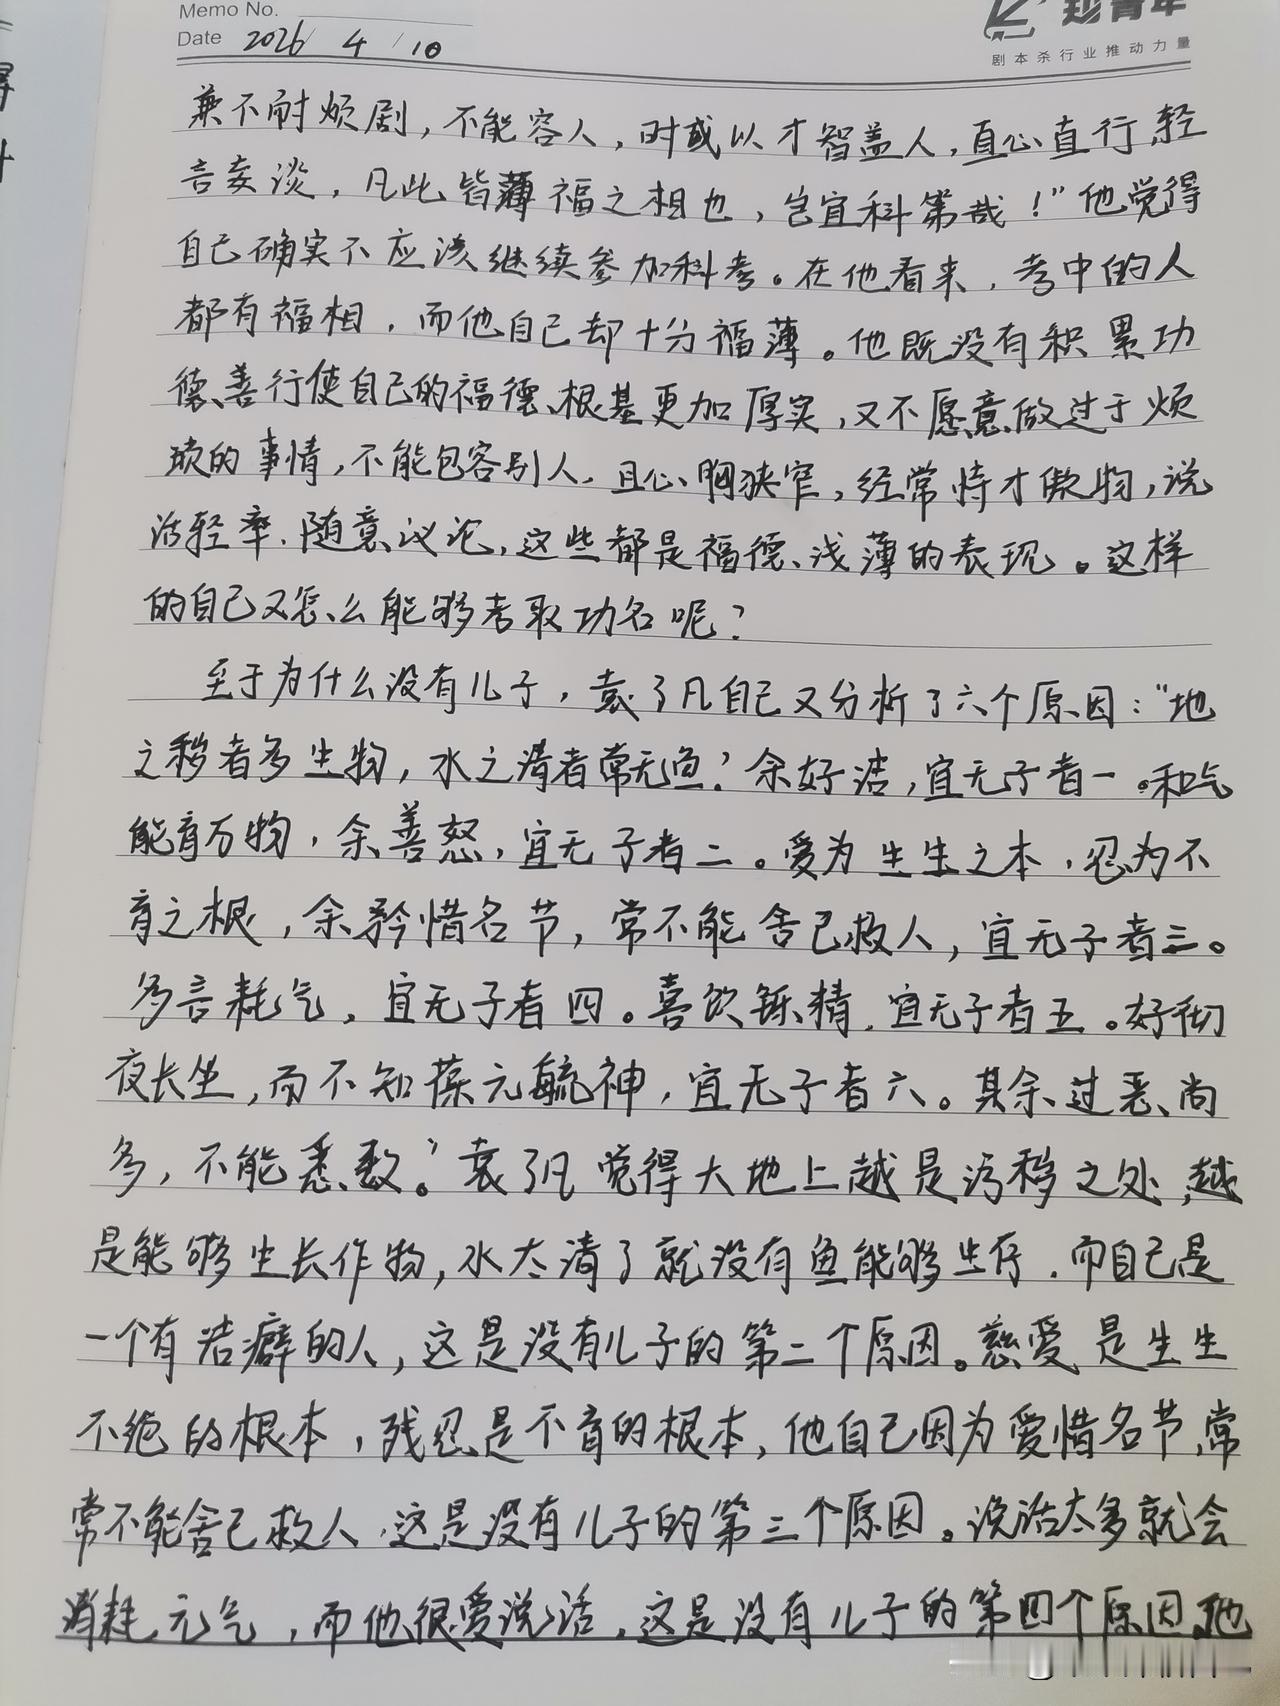 Memo No.
Date 2026 / 4 / 10
青年
剧本杀行业推动力量
兼不耐烦剧，不能容人，时或以才智盖人，直心直行，轻
言妄谈，凡此皆薄福之相也，岂宜科第哉！”他觉得
自己确实不应该继续参加科考。在他看来，考中的人
都有福相，而他自己却十分福薄。他既没有积累功
德、善行使自己的福德、根基更加厚实，又不愿意做过于烦
琐的事情，不能包容别人，且心胸狭窄，经常恃才傲物，说
话轻率、随意议论，这些都是福德、浅薄的表现。这样
的自己又怎么能够考取功名呢？
至于为什么没有儿子，袁了凡自己又分析了六个原因：“地
之秽者多生物，水之清者常无鱼；余好洁，宜无子者一。和气
能育万物，余善怒，宜无子者二。爱为生生之本，忍为不
育之根，余矜惜名节，常不能舍己救人，宜无子者三。
多言耗气，宜无子者四。喜饮铄精，宜无子者五。好彻
夜长坐，而不知葆元毓神，宜无子者六。其余过恶尚
多，不能悉数。”袁了凡觉得大地上越是污秽之处，越
是能够生长作物，水太清了就没有鱼能够生存，而自己是
一个有洁癖的人，这是没有儿子的第二个原因。慈爱是生生
不绝的根本，残忍是不育的根本，他自己因为爱惜名节，常
常不能舍己救人，这是没有儿子的第三个原因。说话太多就会
消耗元气，而他很爱说话，这是没有儿子的第四个原因。他